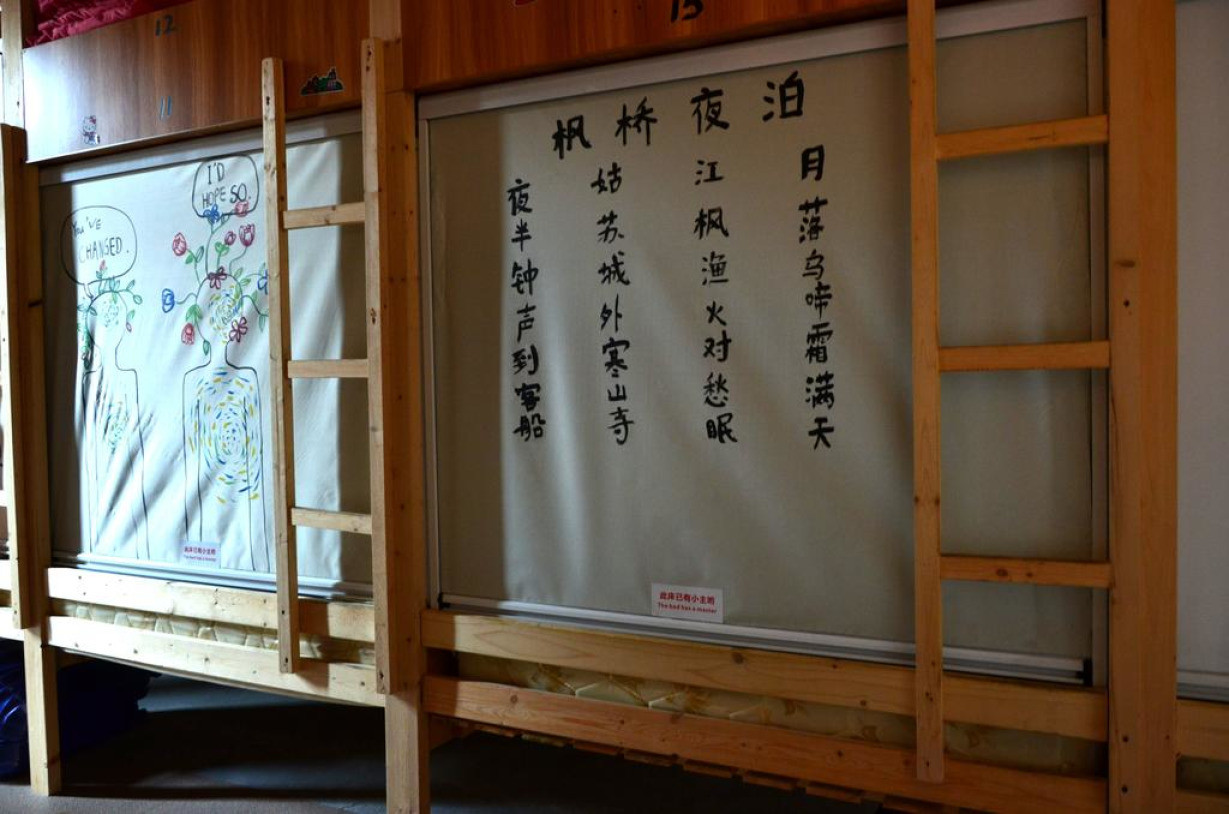 12
11
15
YOU'VE
CHANGED.
I'D
HOPE SO.
此床已有小主哟
The bed has a master
枫桥夜泊
月落乌啼霜满天
江枫渔火对愁眠
姑苏城外寒山寺
夜半钟声到客船
此床已有小主哟
The bed has a master